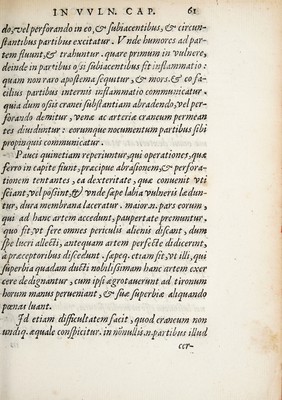 IN VVLN. CAP. 61
do, vel perforando in eo, & subiacentibus, & circun-
stantibus partibus excitatur. Vnde humores ad par-
tem fluunt, & trahuntur. quare primum in vulnere,
deinde in partibus ossi subiacentibus fit inflammatio:
quam non raro apostema sequitur, & mors. & eo fa-
cilius partibus internis inflammatio communicatur.
quia dum ossis cranei substantiam abradendo, vel per-
forando demitur, venæ ac arteriæ craneum permean
tes diuiduntur: eorumque nocumentum partibus sibi
propinquis communicatur.
Pauci quinetiam reperiuntur, qui operationes, quæ
ferro in capite fiunt, præcipue abrasionem, & perfora-
tionem tentantes, ea dexteritate, qua conuenit vti
sciant, vel possint, & vnde sæpe labia vulneris lædun-
tur, dura membrana laceratur. maior.n. pars eorum,
qui ad hanc artem accedunt, paupertate premuntur.
quo fit, vt fere omnes periculis alienis discant, dum
spe lucri allecti, antequam artem perfecte didicerint,
à præceptoribus discedunt. sæpe etiam fit, vt illi, qui
superbia quadam ducti nobilissimam hanc artem exer
cere dedignantur, cum ipsi ægrotauerunt ad tironum
horum manus perueniant, & suæ superbiæ aliquando
pœnas luant.
Id etiam difficultatem facit, quod craneum non
undiq. æquale conspicitur. in nõnullis.n. partibus illud
cer-